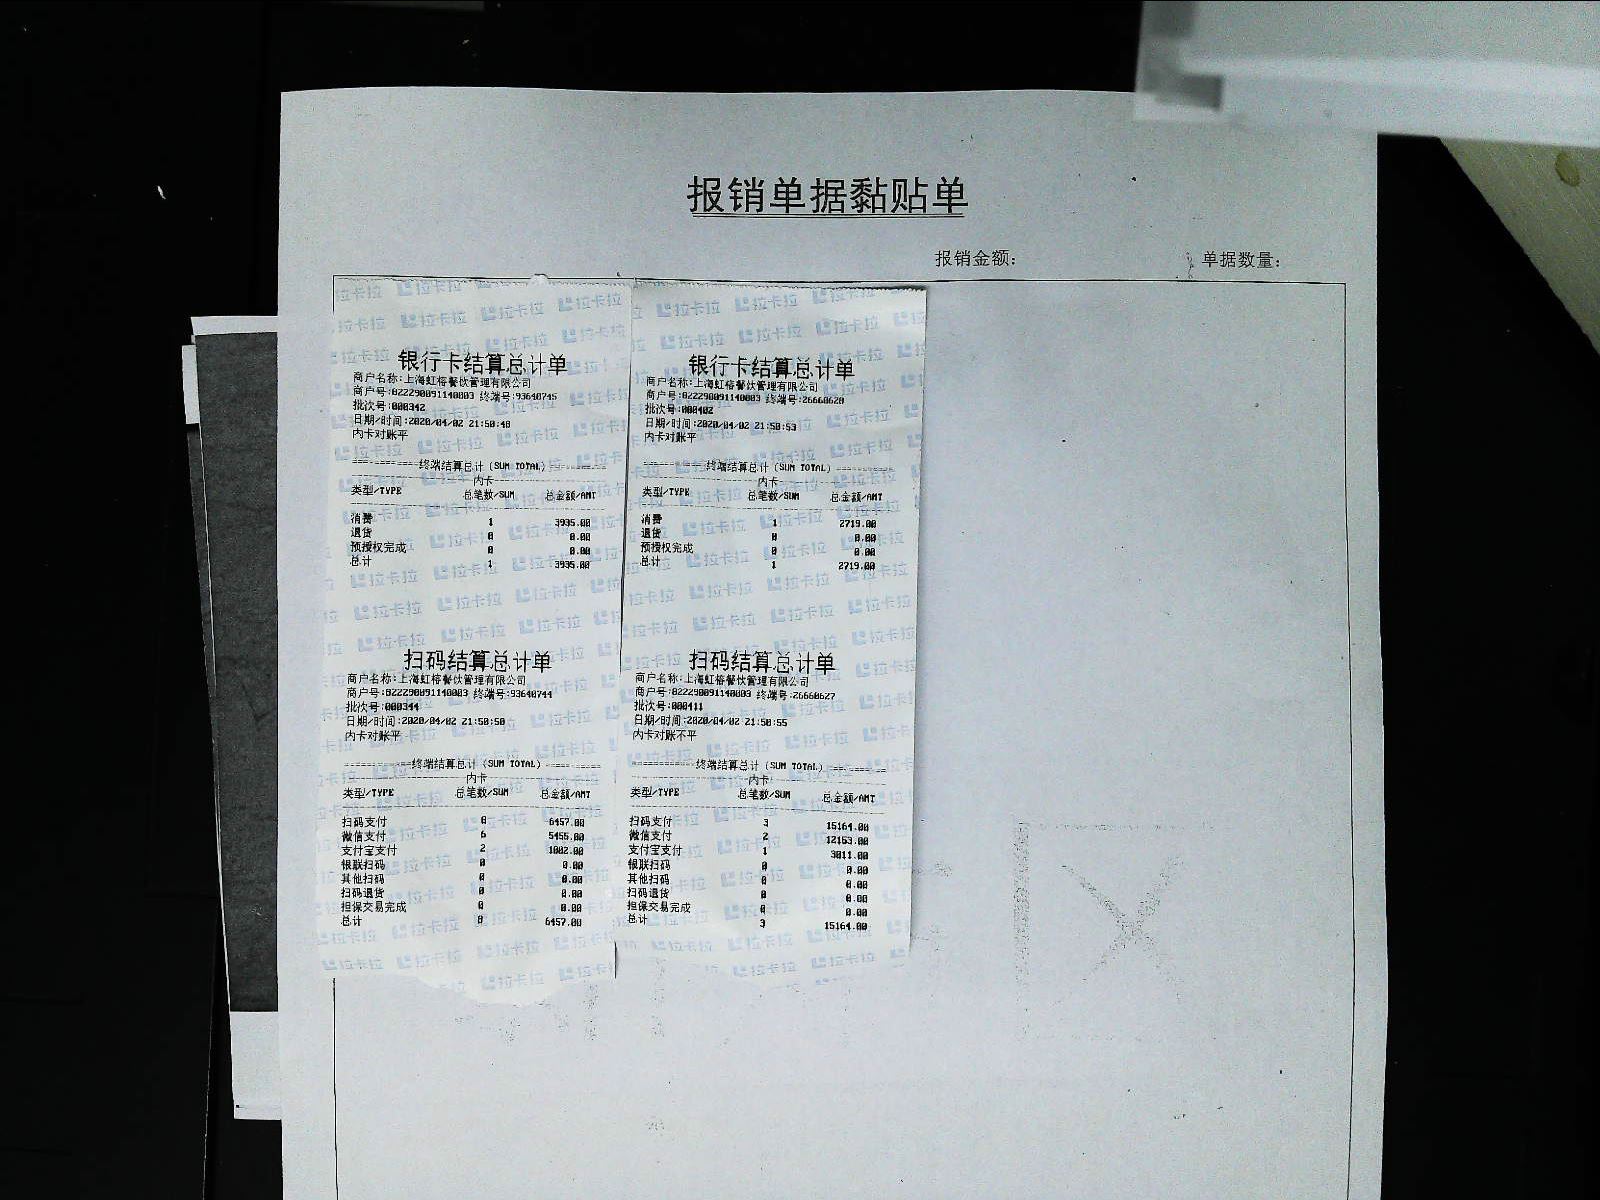 报销单据黏贴单
报销金额：
单据数量：
银行卡结算总计单
商户名称:上海虹榕餐饮管理有限公司
商户号:822290091140003 终端号:93640745
批次号:000342
日期/时间:2020/04/02 21:50:48
内卡对账平
终端结算总计（SUM TOTAL）
内卡
类型/TYPE 总笔数/SUM 总金额/AMT
消费 1 3935.00
退货 0 0.00
预授权完成 0 0.00
总计 1 3935.00
扫码结算总计单
商户名称:上海虹榕餐饮管理有限公司
商户号:822290091140003 终端号:93640744
批次号:000344
日期/时间:2020/04/02 21:50:50
内卡对账平
终端结算总计（SUM TOTAL）
内卡
类型/TYPE 总笔数/SUM 总金额/AMT
扫码支付 8 6457.00
微信支付 6 5455.00
支付宝支付 2 1002.00
银联扫码 0 0.00
其他扫码 0 0.00
扫码退货 0 0.00
担保交易完成 0 0.00
总计 8 6457.00
银行卡结算总计单
商户名称:上海虹榕餐饮管理有限公司
商户号:822290091140003 终端号:26660628
批次号:000402
日期/时间:2020/04/02 21:50:53
内卡对账平
终端结算总计（SUM TOTAL）
内卡
类型/TYPE 总笔数/SUM 总金额/AMT
消费 1 2719.00
退货 0 0.00
预授权完成 0 0.00
总计 1 2719.00
扫码结算总计单
商户名称:上海虹榕餐饮管理有限公司
商户号:822290091140003 终端号:26660627
批次号:000411
日期/时间:2020/04/02 21:50:55
内卡对账不平
终端结算总计（SUM TOTAL）
内卡
类型/TYPE 总笔数/SUM 总金额/AMT
扫码支付 3 15164.00
微信支付 2 12153.00
支付宝支付 1 3011.00
银联扫码 0 0.00
其他扫码 0 0.00
扫码退货 0 0.00
担保交易完成 0 0.00
总计 3 15164.00
拉卡拉